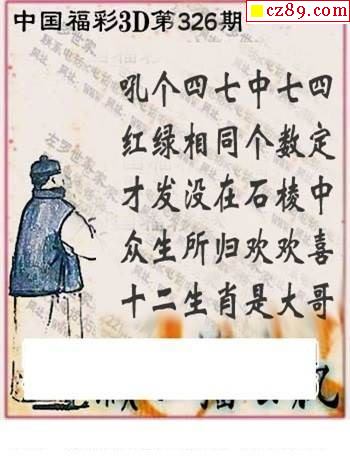 cz89.com
中国福彩3D第326期
吼个四七中七四
红绿相同个数定
才发没在石棱中
众生所归欢欢喜
十二生肖是大哥